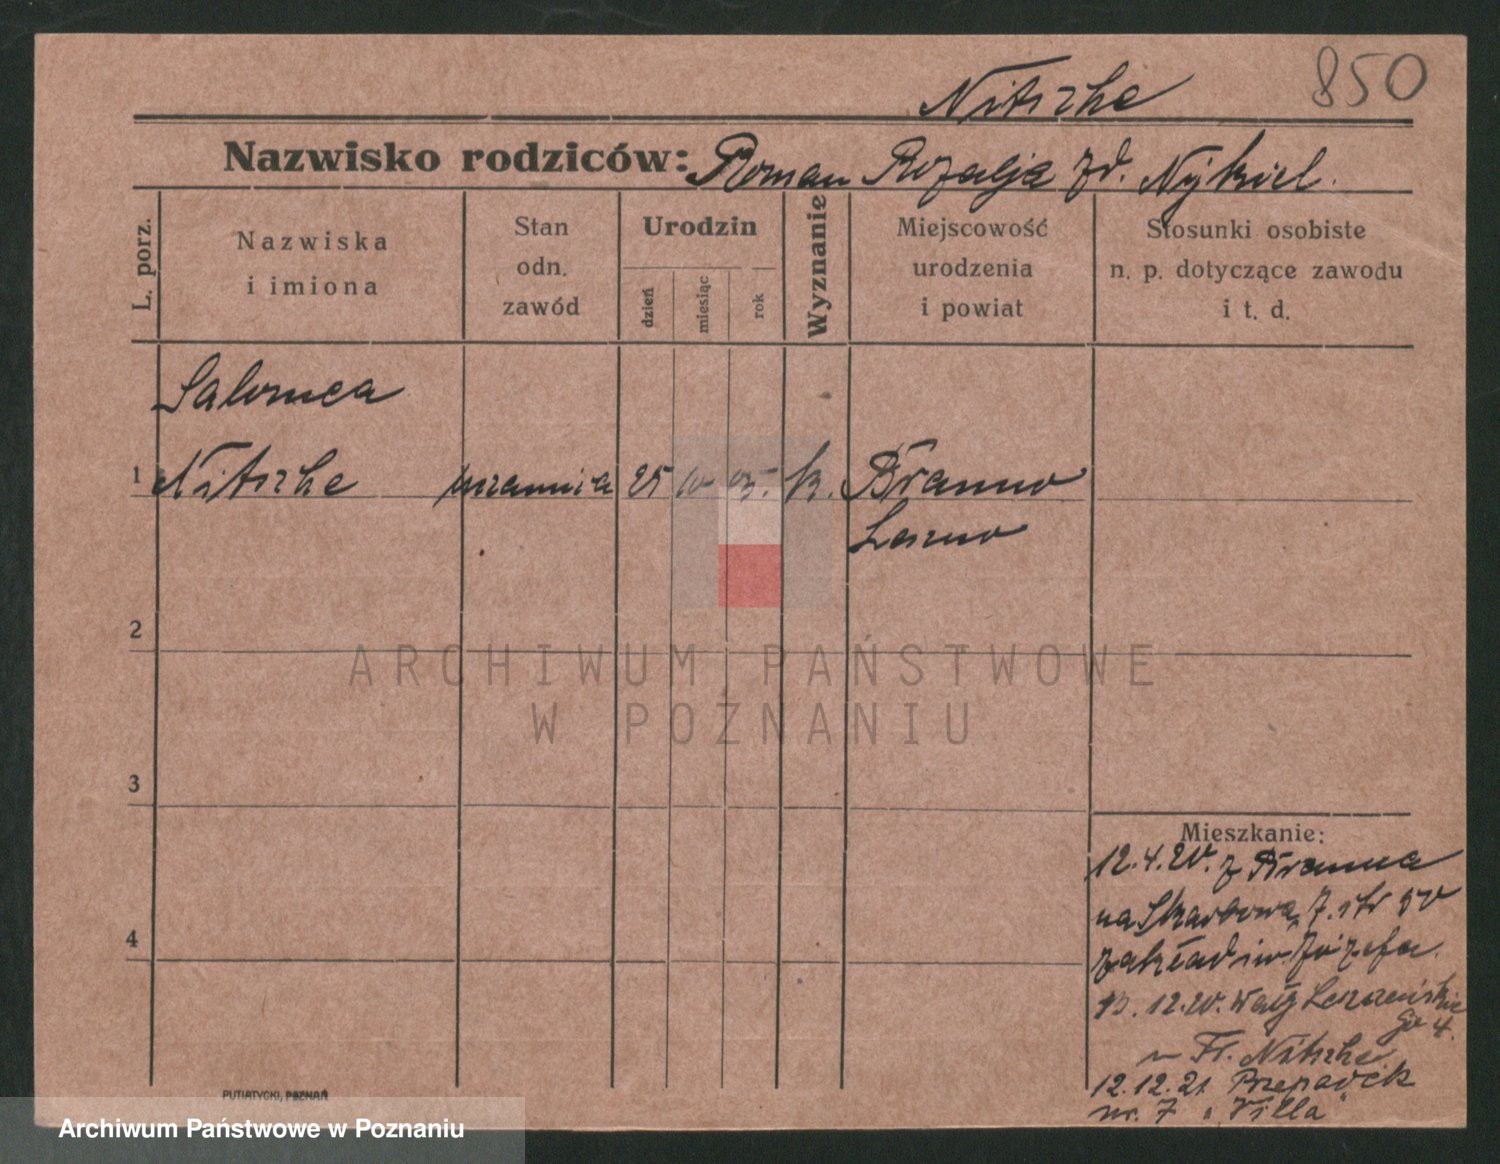 850
Nitszke
Nazwisko rodziców: Roman Rozalja zd. Nykiel.
L. porz.
Nazwiska
i imiona
Stan
odn.
zawód
Urodzin
dzień
miesiąc
rok
Wyznanie
Miejscowość
urodzenia
i powiat
Stosunki osobiste
n. p. dotyczące zawodu
i t. d.
Salomea
1 Nitszke 25 10 05. k.
Leszno
2
3
4
ARCHIWUM PAŃSTWOWE
W POZNANIU
Mieszkanie:
12.4.20. z
na Skarbową 7.
zakład św. Józefa.
12.20. Wały Leszczyńskie
4.
Fr. Nitszke
12.12.21
nr. 7 "Villa"
PUTIATYCKI, POZNAŃ
Archiwum Państwowe w Poznaniu